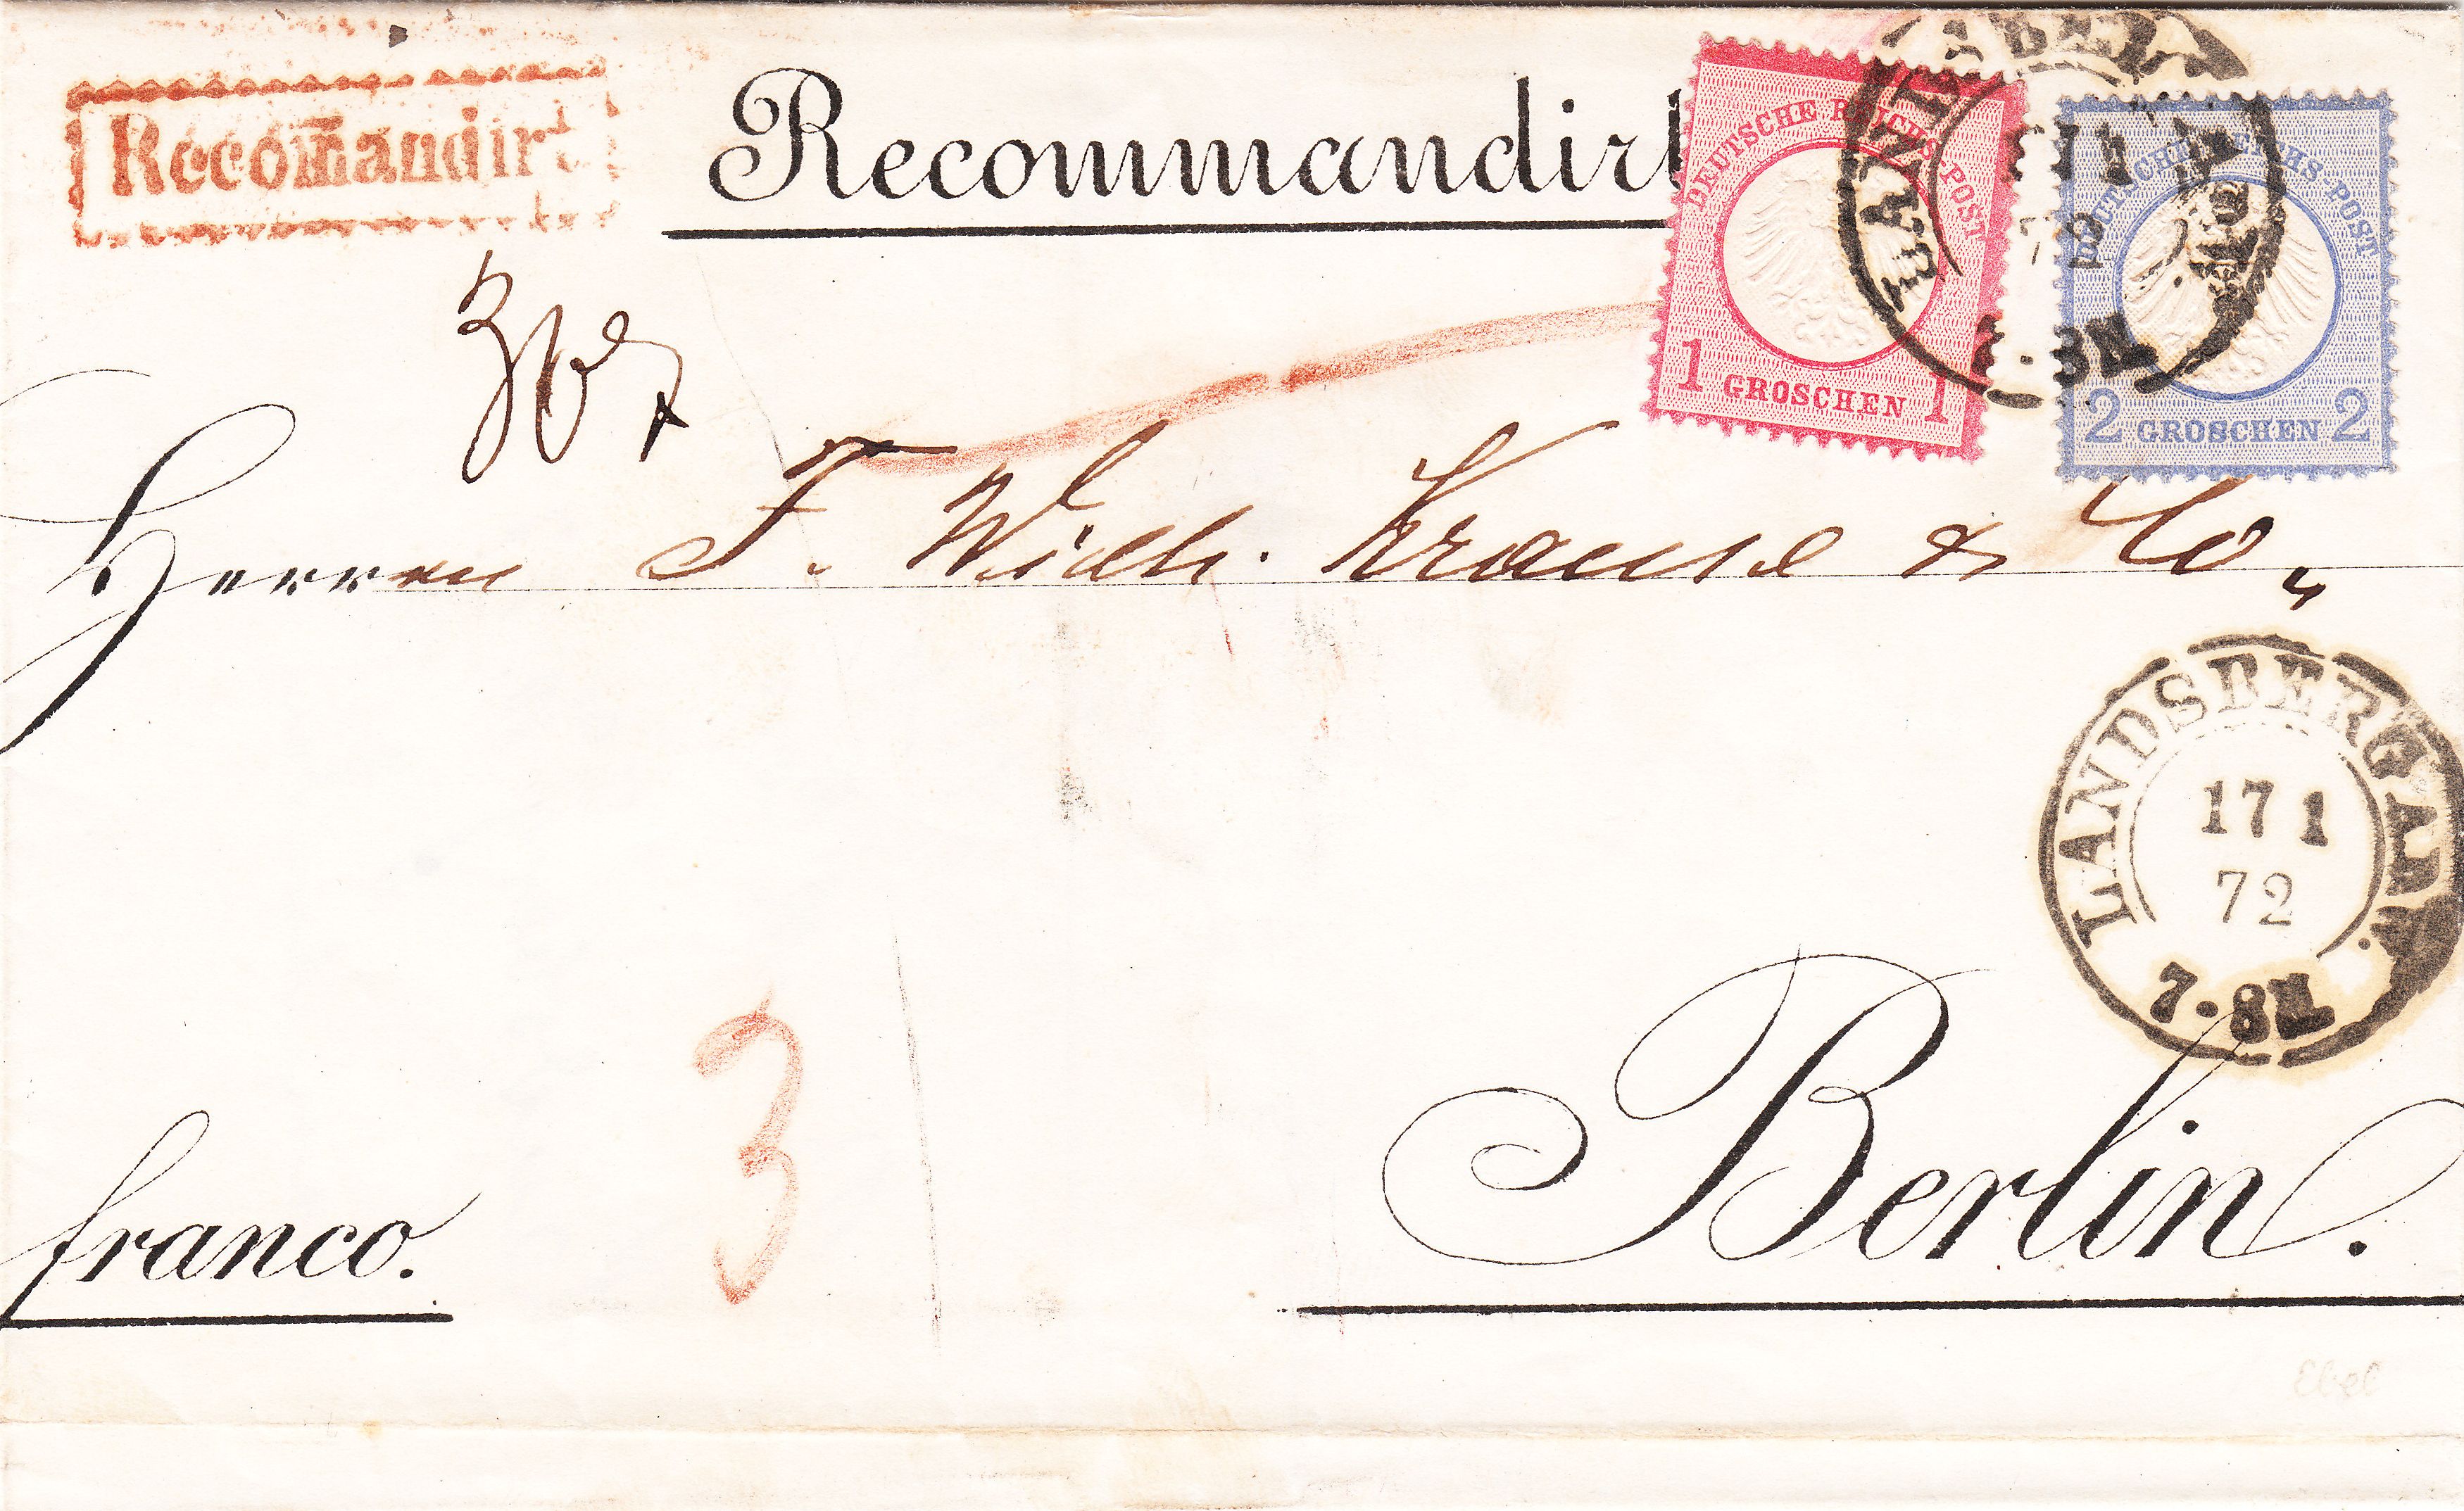 Recom̄andirt
Recommandirt
DEUTSCHE REICHS-POST
1 GROSCHEN 1
DEUTSCHE REICHS-POST
2 GROSCHEN 2
Herren F. Wilh. Krause & Co.,
LANDSBERG A.D.W.
17 1
72
7-8N
3
franco.
Berlin.
Ebel